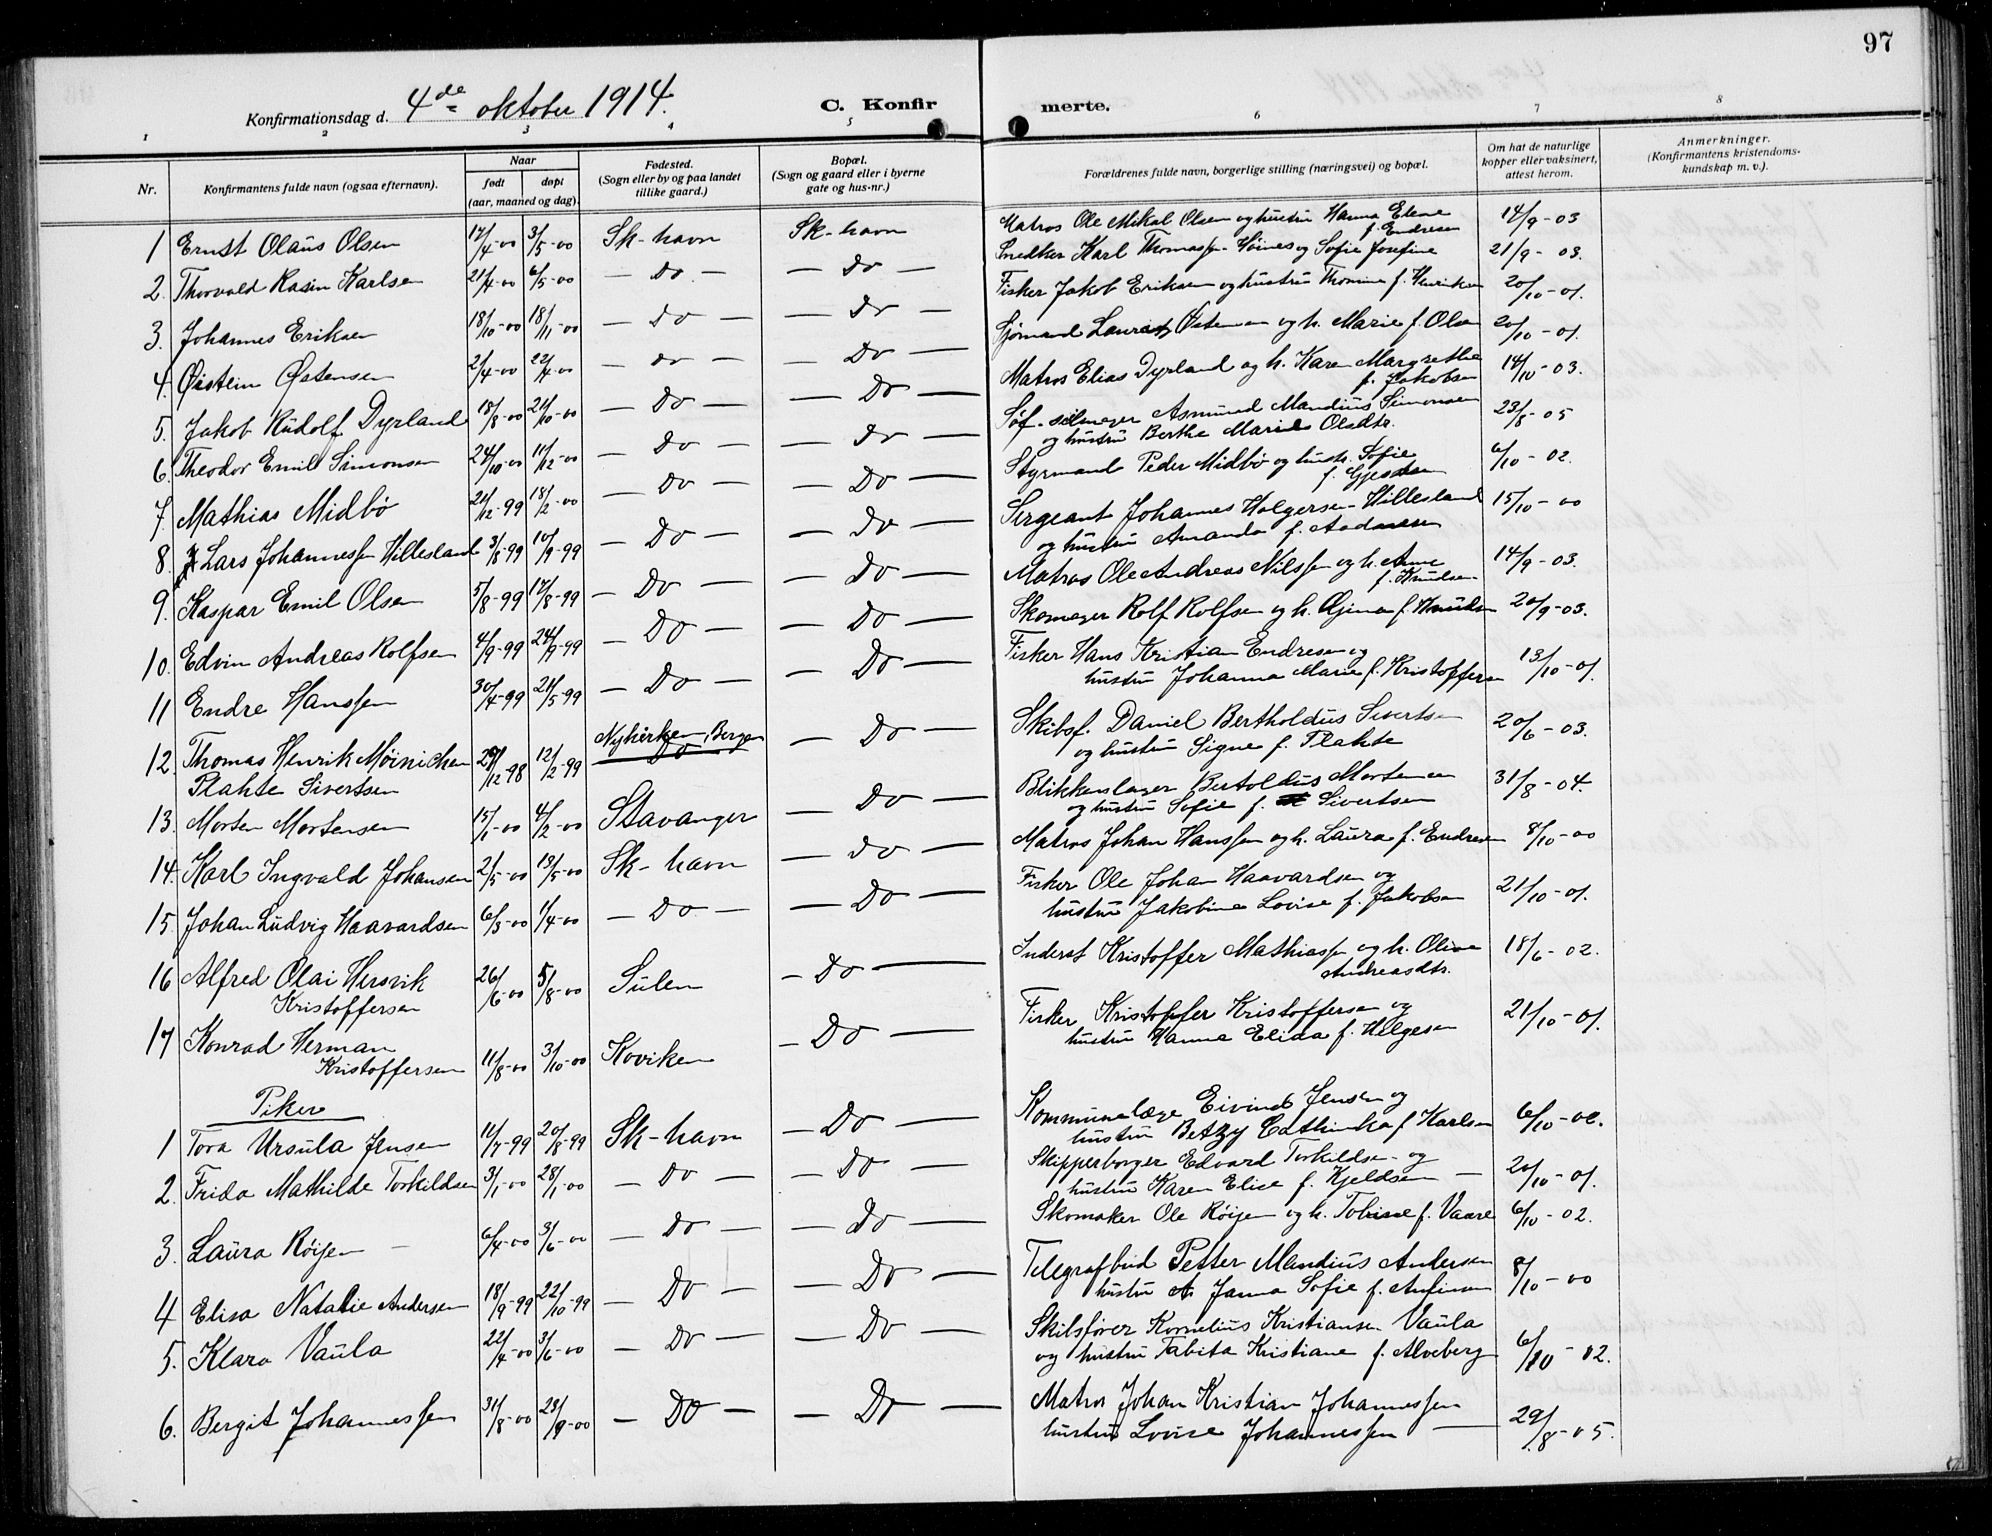 97
Konfirmationsdag d. 4de oktober 1914.
C. Konfirmerte.
1 2 3 4 5 6 7 8
Nr.
Konfirmantens fulde navn (ogsaa efternavn).
Naar
født døpt
(aar, maaned og dag).
Fødested.
(Sogn eller by og paa landet
tillike gaard.)
Bopæl.
(Sogn og gaard eller i byerne
gate og hus-nr.)
Forældrenes fulde navn, borgerlige stilling (næringsvei) og bopæl.
Om hat de naturlige
kopper eller vaksinert,
attest herom.
Anmerkninger.
(Konfirmantens kristendoms-
kundskap m. v.).
1 Ernst Olaus Olsen 17/4-00 3/5-00 Sk-havn Sk-havn Matros Ole Mikal Olsen og hustru Hanna Elene f. Endresen 14/9-03
2. Thorvald Rasin Karlsen 21/4-00 6/5-00 - Do - - Do - Snedker Karl Thomassen Høines og Sofie Josefine 21/9-03.
3. Johannes Eriksen 18/10-00 18/11-00 - Do - - Do - Fisker Jakob Eriksen og hustru Thomine f. Henriksen 20/10-01.
4. Øistein Østensen 2/4-00 22/4-00 - Do - - Do - Sjømand Lauritz Østensen og h. Marie f. Olsen 20/10-01.
5. Jakob Rudolf Dyrland 18/8-00 21/10-00 - Do - - Do - Matros Elias Dyrland og h. Karen Margrethe f. Jakobsen 14/10-03.
6. Theodor Emil Simonsen 24/10-00 11/12-00 - Do - - Do - Asmund Mandius Simonsen
og hustru Berthe Marie Olsdtr. 23/8-05
7. Mathias Midbø 21/12-99 18/2-00 - Do - - Do - Styrmand Peder Midbø og hustr. Sofie f. Gjesdsen 6/10-02.
8. Lars Johannessen Hillesland 3/8-99 10/9-99 - Do - - Do - Sergeant Johannes Holgersen Hillesland
og hustru Amanda f. Aadnesen 15/10-00
9. Kaspar Emil Olsen 5/8-99 17/8-99 - Do - - Do - Matros Ole Andreas Nilssen og h. Anne f. Knudsen 14/9-03.
10. Edvin Andreas Rolfsen 4/9-99 24/9-99 - Do - - Do - Skomager Rolf Rolfsen og h. Gjina f. Knudsen 20/9-03.
11 Endre Hanssen 30/4-99 21/5-99 - Do - - Do - Fisker Hans Kristian Endresen og
hustru Johanna Marie f. Kristoffersen 13/10-01.
12. Thomas Henrik Møinichen
Plahte Sivertsen 29/12-98 12/2-99 Nykirken, Bergen Do - Do - Skibsf. Daniel Bertholdus Sivertsen
og hustru Signe f. Plahte 20/6-03.
13. Morten Mortensen 15/1-00 4/2-00 Stavanger - Do - Blikkenslager Bertoldus Mortensen
og hustru Sofie f. Sivertsen 31/8-04.
14. Karl Ingvald Johansen 2/5-00 13/5-00 Sk-havn - Do - Matros Johan Hanssen og h. Laura f. Endresen 8/10-00
15. Johan Ludvig Haavardsen 6/3-00 1/4-00 - Do - - Do - Fisker Ole Johan Haavardsen og
hustru Jakobine Lovise f. Jakobsen 21/10-01.
16 Alfred Olai Hersvik
Kristoffersen 26/6-00 5/8-00 Sulen - Do - Inderst Kristoffer Mathiassen og h. Oline
Andreasdtr. 18/6-02.
17 Konrad Herman
Kristoffersen 11/8-00 3/10-00 Koviken - Do - Fisker Kristoffer Kristoffersen og
hustru Hanna Elida f. Helgesen 21/10-01.
Piker
1 Tora Ursula Jensen 11/7-99 20/8-99 Sk-havn - Do - Kommunelæge Eivind Jensen og
hustru Betzy Cathinka f. Karlsen 6/10-02.
2. Frida Mathilde Torkildsen 3/1-00 28/1-00 - Do - - Do - Skipperborger Edvard Torkildsen og
hustru Karen Elise f. Kjeldsen 20/10-01.
3. Laura Röijen 6/4-00 3/6-00 - Do - - Do - Skomaker Ole Röijen og h. Tobine f. Vaare 6/10-02.
4 Elisa Natalie Andersen 18/9-99 22/10-99 - Do - - Do - Telegrafbud Petter Mandius Andersen
hustru Janna Sofie f. Anfinsen 8/10-00
5. Klara Vaula 22/4-00 3/6-00 - Do - - Do - Skibsfører Kornelius Kristiansen Vaula
og hustru Tabita Kristiane f. Alveberg 6/10-02.
6. Bergit Johannessen 31/8-00 23/9-00 - Do - - Do - Matros Johan Kristian Johannessen
hustru Lovise Johannessen 29/8-05.